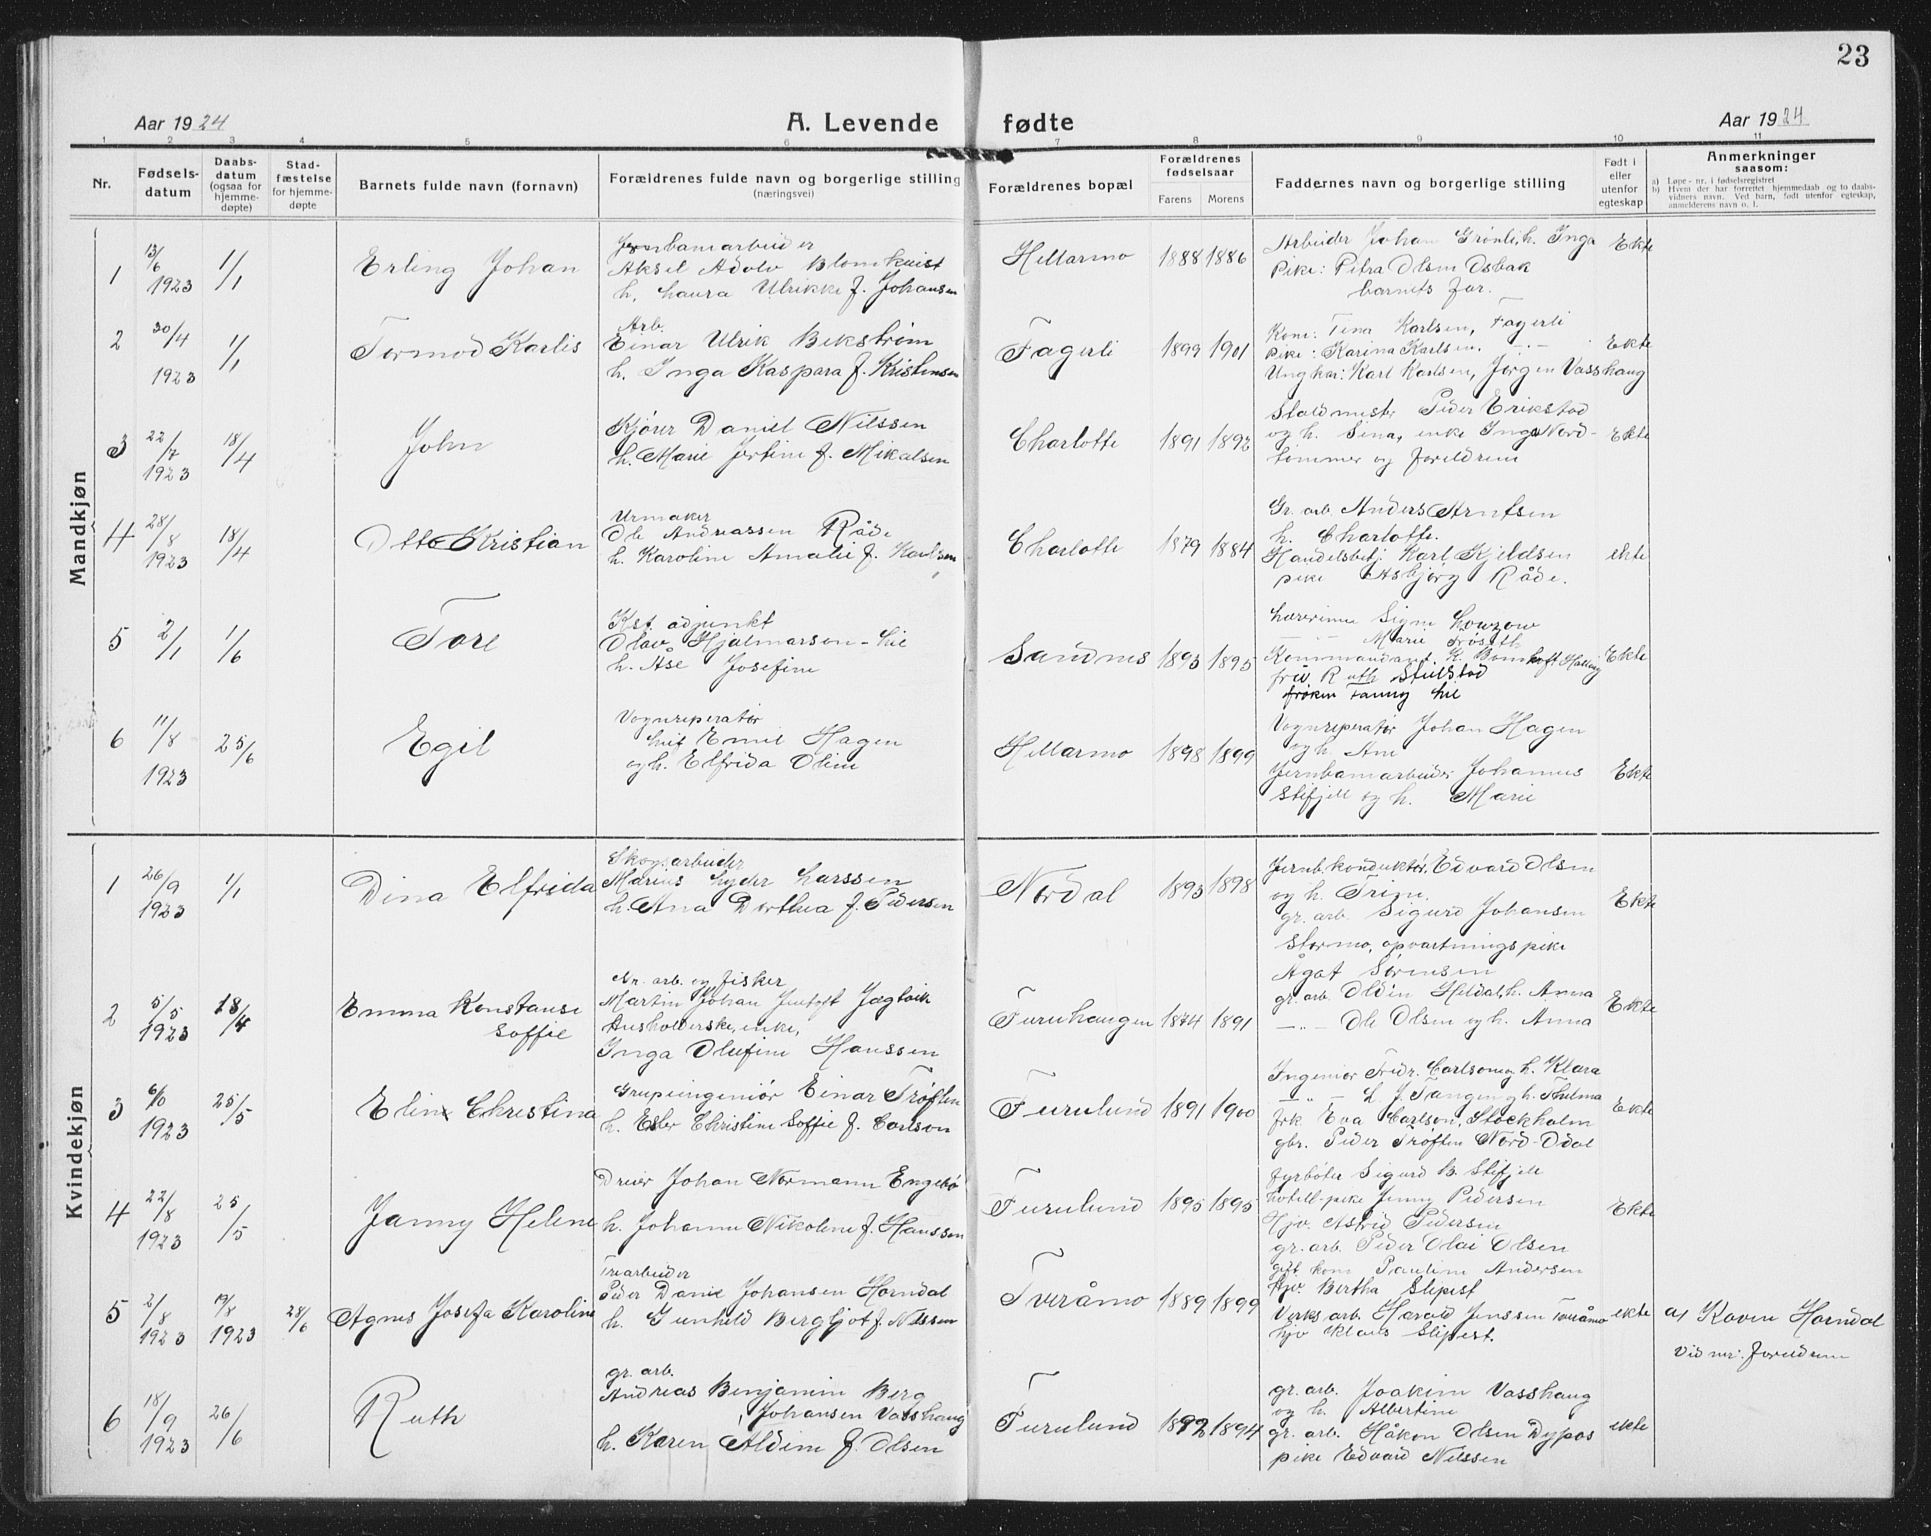 23
Aar 1924
A. Levende fødte
Aar 1924
1 2 3 4 5 6 7 8 9 10 11
Nr.
Fødsels-
datum
Daabs-
datum
(ogsaa for
hjemme-
døpte)
Stad-
fæstelse
for hjemme-
døpte
Barnets fulde navn (fornavn)
Forældrenes fulde navn og borgerlige stilling
(næringsvei)
Forældrenes bopæl
Forældrenes
fødselsaar
Farens Morens
Faddernes navn og borgerlige stilling
Født i
eller
utenfor
egteskap
Anmerkninger
saasom:
a) Løpe-nr. i fødselsregistret
b) Hvem der har forrettet hjemmedaab og to daabs-
vidners navn. Ved barn, født utenfor egteskap,
anmelderens navn o. l.
Mandkjøn
1 13/6 1923 1/1 Erling Johan
Jernbanearbeider
Aksel Adolv Blomkvist
h. Laura Ulrikke f. Johansen
Hellarmo 1888 1886
Arbeider Johan Grønli, h. Inga
Pike: Petra Olsen Osbak
barnets far.
Ekte
2 30/4 1923 1/1 Tormod Karlis
Arb.
Einar Ulrik Bekstrøm
h. Inga Kaspara f. Kristensen
Fagerli 1899 1901
Kone: Tina Karlsen, Fagerli
Pike: Karina Karlsen. -..-
Ungkar: Karl Karlsen, Jørgen Vasshaug
Ekte
3 22/7 1923 18/4 John
Kjører Daniel Nilssen
h. Marie Jertine f. Mikalsen
Charlotte 1891 1892
Staldmester Peder Erikstad
og h. Sina, enke Inga Nord-
tømmer og foreldrene
Ekte
4 28/8 1923 18/4 Otto Kristian
Urmaker
Ole Andreassen Råde
h. Karoline Amalie f. Karlsen
Charlotte 1879 1884
Gr. arb. Anders Arntsen
h. Charlotte.
Handelsbetj. Karl Kjeldsen
pike Asbjørg Råde.
ekte
5 2/1 1/6 Tore
Kst. adjunkt
Olav Hjalmarson-Lie
h. Åse Josefine
Sandnes 1893 1895
Lærerinne Signe Lowzow
-"- Marie Frøseth
Kommandant. K. Bomhoft Halling
frû Ruth Stulstad
frøken Fanny Lie
Ekte
6 11/8 1923 25/6 Egil
Vognreperatør
Leif Emil Hagen
og h. Elfrida Oline
Hellarmo 1898 1899
Vognreperatør Johan Hagen
og h. Ane
Jernbanearbeider Johannes
Stifjell og h. Marie
Ekte
Kvindekjøn
1 26/9 1923 1/1 Dina Elfrida
Skogsarbeider
Marius Lyder Larssen
h. Ana Dorthea f. Pedersen
Nordal 1893 1898
Jernb. konduktør, Edvard Olsen
og h. Trine.
gr. arb. Sigurd Johansen
Stormo, opvartningspike
Ågot Sørensen
Ekte
2 5/5 1923 18/4 Emma Konstanse
Soffie
An. arb. og fisker
Martin Johan Jentoft Jægtvik
Husholderske, enke,
Inga Olufine Hanssen
Furuhaugen 1874 1891
gr. arb. Oldin Heldal, h. Anna
-"- Ole Olsen og h. Anna
Ekte
3 6/10 1923 25/5 Elin Christina
Grupeingeniør Einar Trøften
h. Ester Christine Soffie f. Carlson
Furulund 1891 1900
Ingeniør Fridr. Carlson og h. Klara
-"- L. J. Tangen og h. Thelma
frk Eva Carlson, Stockholm
gbr. Peder Trøften Nord-Odal
Ekte
4 22/8 1923 25/5 Janny Helene
Driver Johan Normann Engebø
h. Johanne Nikoline f. Hanssen
Furulund 1895 1895
Fyrbøter Sigurd B. Stifjell
hotell-pike Jenny Pedersen
Hjv. Astrid Pedersen
gr. arb. Peder Olai Olsen
Ekte
5 2/8 1923 19/8 1923 28/6 Agnes Josefa Karoline
Trearbeider
Peder Daniel Johansen Horndal
h. Gunhild Bergljot f. Nilssen
Tveråmo 1889 1899
gift kone Pauline Andersen
hjv. Bertha Slipest
Verksarb. Harald Jenssen Tveråmo
hjv Klaus Slipest.
ekte
a/ Karen Horndal
Vidner: foreldrene
6 18/9 1923 26/6 Ruth
gr. arb.
Andreas Benjamin Berg
Johansen Vasshaug
h. Karen Aldine f. Olsen
Furulund 1892 1894
gr. arb. Joakim Vasshaug
og h. Albertine
gr. arb. Håkon Olsen Dypos
pike Edvard Nilssen
ekte